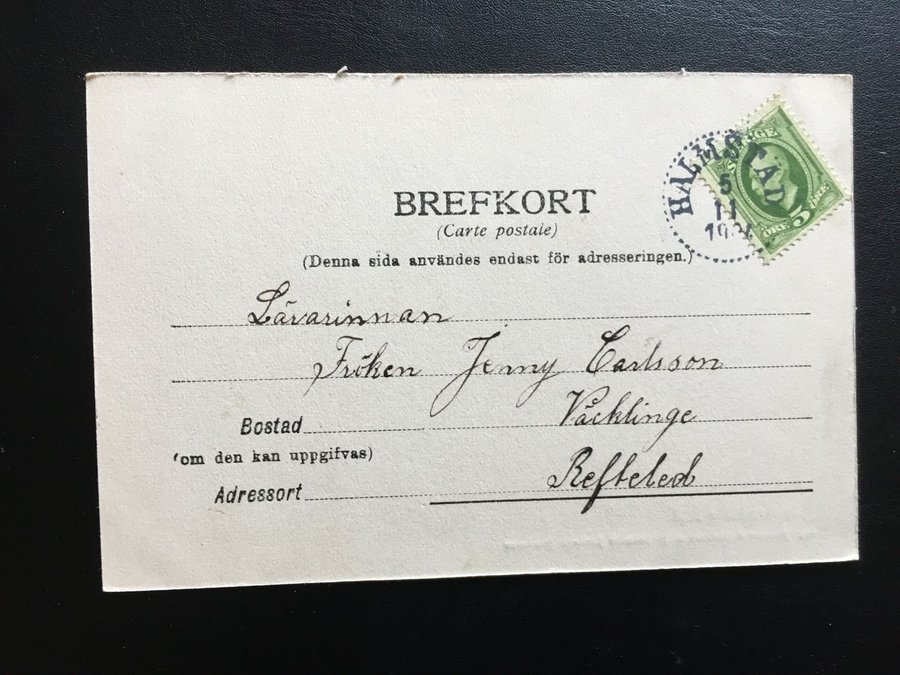 BREFKORT
(Carte postale)
(Denna sida användes endast för adresseringen.)
HALMSTAD
5
11
SVERIGE
ÖRE 5 ÖRE
Lärarinnan
Fröken Jenny Carlsson
Bostad Våcklinge
(om den kan uppgifvas)
Adressort Refteled